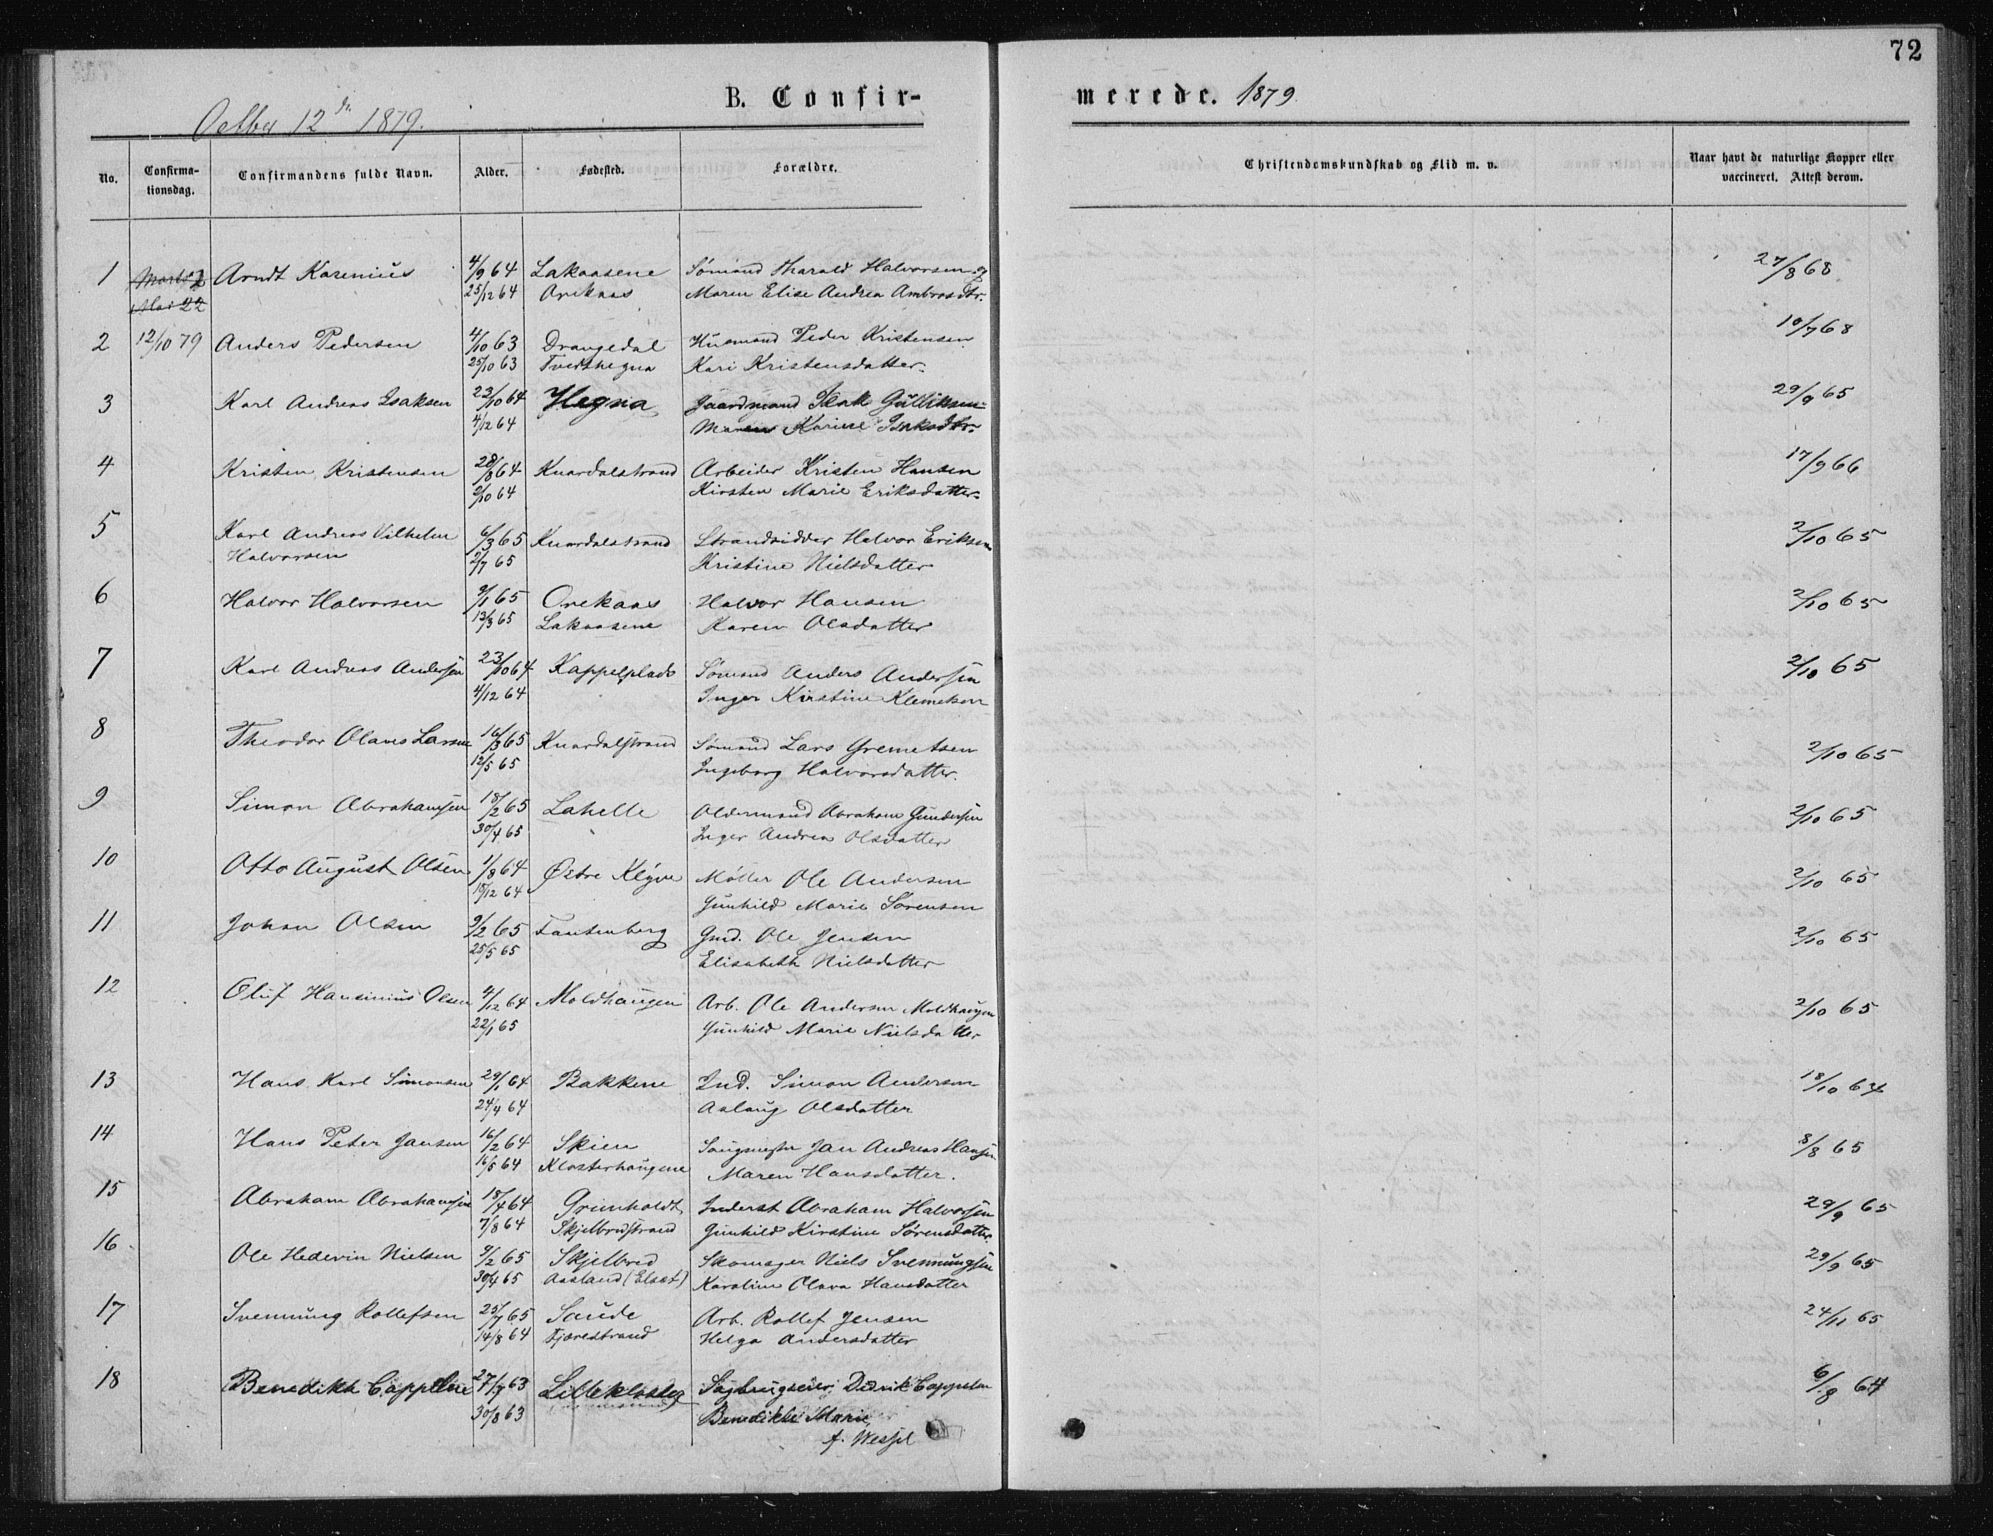 72
B. Confir-
merede. 1879
October 12 1879.
No. Confirma-tionsdag. Confirmandens fulde Navn. Alder. Fødested. Forældre. Christendomskundskab og Flid m. v. Naar havt de naturlige Kopper eller vaccineret. Attest derom.
1 Arndt Karenius 4/9 64 Lakaasene Sømand Tharald Halvorsen og 27/8 68
Mai 22 25/12 64 Orekaas Maren Elise Andrea Ambrosdtr.
2 12/10 79 Anders Pedersen 4/10 63 Drangedal Husmand Peder Kristensen 10/7 68
25/10 63 Kari Kristensdatter
3 Karl Andreas Isaksen 23/10 64 Hegna Gaardmand Isak Gulliksen 29/9 65
4/12 64 Maren Karine Isaksdtr.
4 Kristen Kristensen 28/8 64 Knardalstrand Arbeider Kristen Hansen 17/9 66
2/10 64 Kirsten Marie Eriksdatter
5 Karl Andreas Vilhelm 6/3 65 Knardalstrand Strandsidder Halvor Eriksen 2/10 65
Halvorsen 2/7 65 Kristine Nielsdatter
6 Halvor Halvorsen 9/1 65 Orekaas Halvor Hansen 2/10 65
13/3 65 Lakaasene Karen Olsdatter
7 Karl Andreas Andersen 23/10 64 Kappelplads Sømand Anders Andersen 2/10 65
4/12 64 Inger Kirstine Klemetsen
8 Theodor Olaus Larsen 16/3 65 Knardalstrand Sømand Lars Gremetsen 2/10 65
12/5 65 Ingeborg Halvorsdatter
9 Simon Abrahamsen 18/2 65 Lahelle Oldermand Abraham Gundersen 2/10 65
30/4 65 Inger Andrea Olsdatter
10 Otto August Olsen 1/8 64 Østre Klyve Møller Ole Andersen 2/10 65
18/12 64 Gunhild Marie Sørensen
11 Johan Olsen 9/2 65 Fantenberg Gmd. Ole Jensen 2/10 65
25/5 65 Elisabeth Nielsdatter
12 Oluf Hansinius Olsen 4/12 64 Moldhaugen Arb. Ole Andersen Moldhaugen 2/10 65
22/1 65 Gunhild Marie Nielsdatter
13 Hans Karl Simonsen 29/1 64 Bakkene Ind. Simon Andersen 18/10 64
24/4 64 Aslaug Olsdatter
14 Hans Peter Jansen 16/2 64 Skien Saugmester Jan Andreas Hansen 8/8 65
16/5 64 Klosterhaugene Maren Hansdatter.
15 Abraham Abrahamsen 18/4 64 Grinholdt Inderst Abraham Halvorsen 29/9 65
7/8 64 Skjelbredstrand Gunhild Kirstine Sørensdatter
16 Ole Hedevin Nielsen 9/2 65 Skjelbred Skomager Niels Svennungsen 29/9 65
30/4 65 Aasland (Elset) Karoline Olava Hansdatter
17 Svennung Rollefsen 25/7 65 Saude Arb. Rollef Jensen 24/11 65
14/8 64 Fjærestrand Helga Andersdatter
18 Benedikta Cappelen 27/7 63 Lillekloster Sagbrugseier Didrik Cappelen 6/8 64
30/8 63 Benedikte Marie
f. Wessel